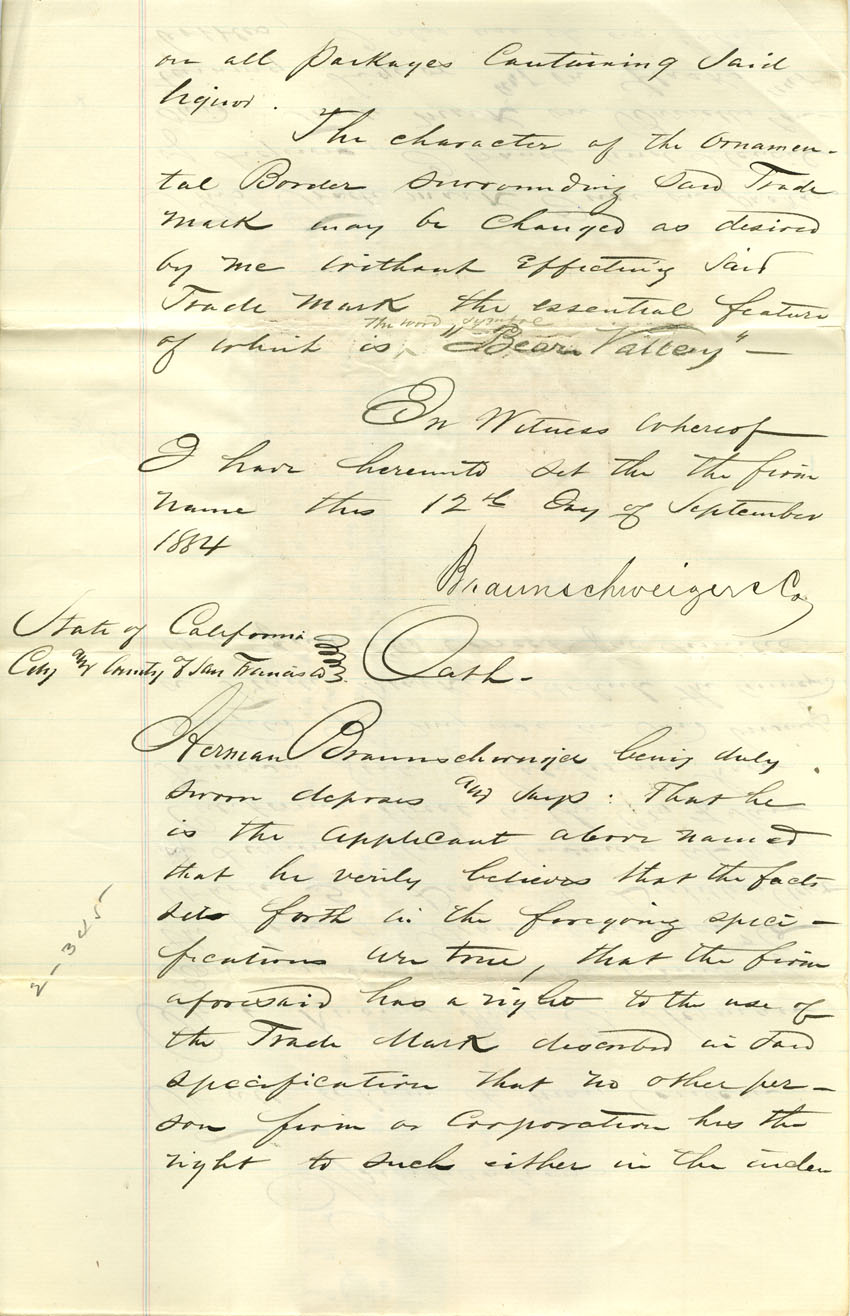 on all Packages Containing Said
liquor.
The character of the Ornamen-
tal Border surrounding Said Trade
Mark may be changed as desired
by me without Effecting Said
Trade Mark the essential feature
the word symbol
of which is "Bear Valley" —
In Witness Whereof
I have hereunto set the the firm
name this 12th Day of September
1884
Braunschweiger & Co
State of California
City and County of San Francisco
Oath -
Herman Braunschweiger being duly
sworn deposes and says: That he
is the applicant above named
that he verily believes that the facts
sets forth in the foregoing speci-
fications are true, that the firm
2-345
aforesaid has a right to the use of
the Trade Mark described in Said
specification that no other per-
son firm or Corporation has the
right to such either in the iden